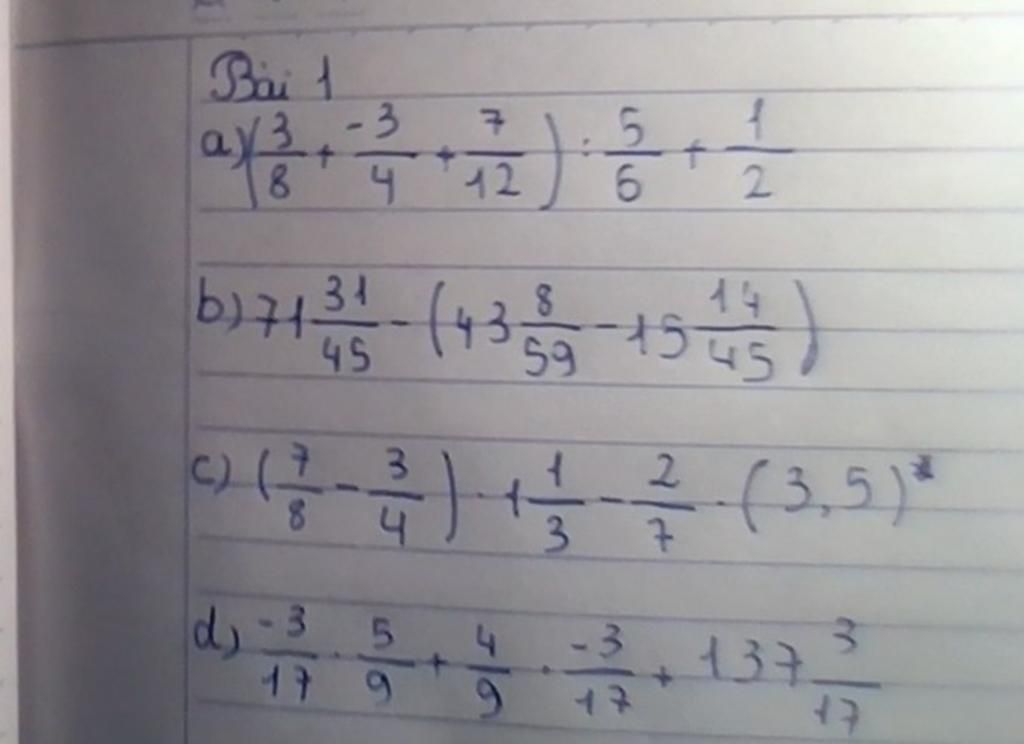 Bài 1
a) (3/8 + -3/4 + 7/12) : 5/6 + 1/2
b) 71 31/45 - (43 8/59 - 15 14/45)
c) (7/8 - 3/4) . 1 1/3 - 2/7 . (3,5)
d) -3/17 . 5/9 + 4/9 . -3/17 + 137 3/17